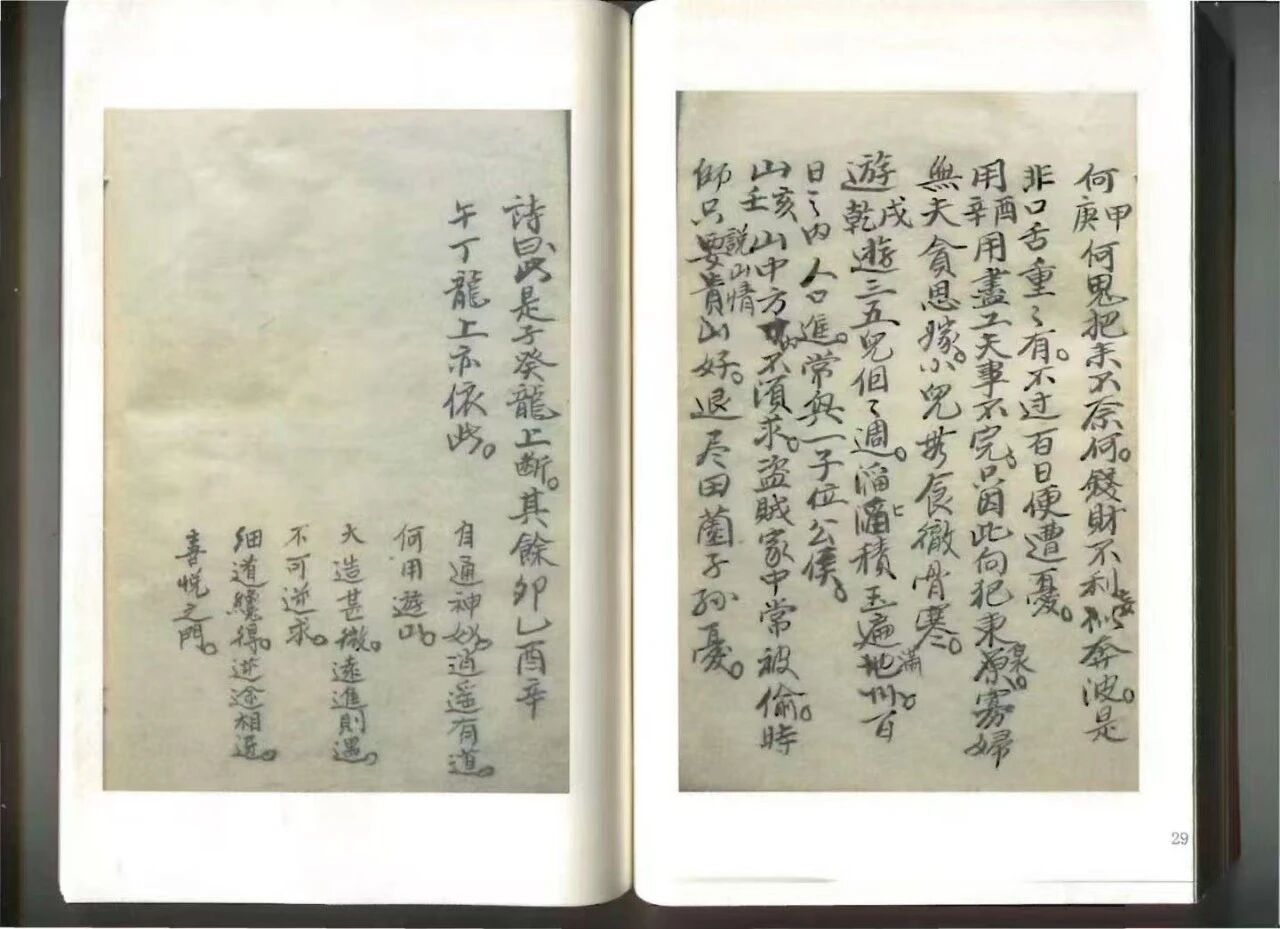 何庚甲何鬼把来不奈何。錢財不利私奔波。是
非口舌重々有。不过百日便遭憂。
用辛酉用盡工夫事不完。只因此向犯東泉。寡婦
無夫貪思嫁。小兒无食徹骨寒。
遊乾戌遊三五兒個々週。滔滔積玉遍地州。滿百
日之内人口進。常與一子位公侯。
山壬亥山中方不須求。盜賊家中常被偷。時
師只要貴山好。說山情退尽田薗子孫憂。
29
詩曰此是子癸龍上断。其餘卯乙酉辛
午丁龍上亦依此。
自通神妙。逍遥有道。
何用遊山。
大造甚微。遠進則遇。
不可逆求。
細道纔得。逆途相逢。
喜悅之門。